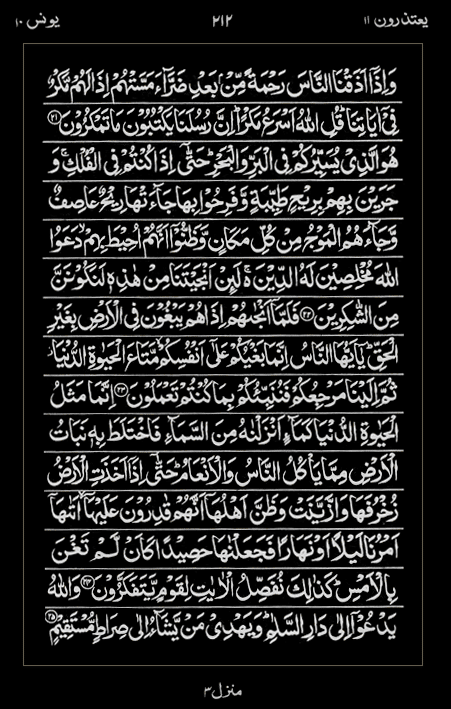 یعتذرون ۱۱ ۲۱۲ یونس ۱۰
وَاِذَاۤ اَذَقْنَا النَّاسَ رَحْمَةً مِّنْۢ بَعْدِ ضَرَّآءَ مَسَّتْهُمْ اِذَا لَهُمْ مَّكْرٌ
فِیْۤ اٰیَاتِنَا ؕ قُلِ اللّٰهُ اَسْرَعُ مَكْرًا ؕ اِنَّ رُسُلَنَا یَكْتُبُوْنَ مَا تَمْكُرُوْنَ ﴿۲۱﴾
هُوَ الَّذِیْ یُسَیِّرُكُمْ فِی الْبَرِّ وَالْبَحْرِ ؕ حَتّٰۤی اِذَا كُنْتُمْ فِی الْفُلْكِ ۚ وَ
جَرَیْنَ بِهِمْ بِرِیْحٍ طَیِّبَةٍ وَّفَرِحُوْا بِهَا جَآءَتْهَا رِیْحٌ عَاصِفٌ
وَّجَآءَهُمُ الْمَوْجُ مِنْ كُلِّ مَكَانٍ وَّظَنُّوْۤا اَنَّهُمْ اُحِیْطَ بِهِمْ ۙ دَعَوُا
اللّٰهَ مُخْلِصِیْنَ لَهُ الدِّیْنَ ۬ۚ لَئِنْ اَنْجَیْتَنَا مِنْ هٰذِهٖ لَنَكُوْنَنَّ
مِنَ الشّٰكِرِیْنَ ﴿۲۲﴾ فَلَمَّاۤ اَنْجٰىهُمْ اِذَا هُمْ یَبْغُوْنَ فِی الْاَرْضِ بِغَیْرِ
الْحَقِّ ؕ یٰۤاَیُّهَا النَّاسُ اِنَّمَا بَغْیُكُمْ عَلٰۤی اَنْفُسِكُمْ ۙ مَّتَاعَ الْحَیٰوةِ الدُّنْیَا ۫
ثُمَّ اِلَیْنَا مَرْجِعُكُمْ فَنُنَبِّئُكُمْ بِمَا كُنْتُمْ تَعْمَلُوْنَ ﴿۲۳﴾ اِنَّمَا مَثَلُ
الْحَیٰوةِ الدُّنْیَا كَمَآءٍ اَنْزَلْنٰهُ مِنَ السَّمَآءِ فَاخْتَلَطَ بِهٖ نَبَاتُ
الْاَرْضِ مِمَّا یَاْكُلُ النَّاسُ وَالْاَنْعَامُ ؕ حَتّٰۤی اِذَاۤ اَخَذَتِ الْاَرْضُ
زُخْرُفَهَا وَازَّیَّنَتْ وَظَنَّ اَهْلُهَاۤ اَنَّهُمْ قٰدِرُوْنَ عَلَیْهَاۤ ۙ اَتٰىهَاۤ
اَمْرُنَا لَیْلًا اَوْ نَهَارًا فَجَعَلْنٰهَا حَصِیْدًا كَاَنْ لَّمْ تَغْنَ
بِالْاَمْسِ ؕ كَذٰلِكَ نُفَصِّلُ الْاٰیٰتِ لِقَوْمٍ یَّتَفَكَّرُوْنَ ﴿۲۴﴾ وَاللّٰهُ
یَدْعُوْۤا اِلٰی دَارِ السَّلٰمِ ؕ وَیَهْدِیْ مَنْ یَّشَآءُ اِلٰی صِرَاطٍ مُّسْتَقِیْمٍ ﴿۲۵﴾
منزل ۳